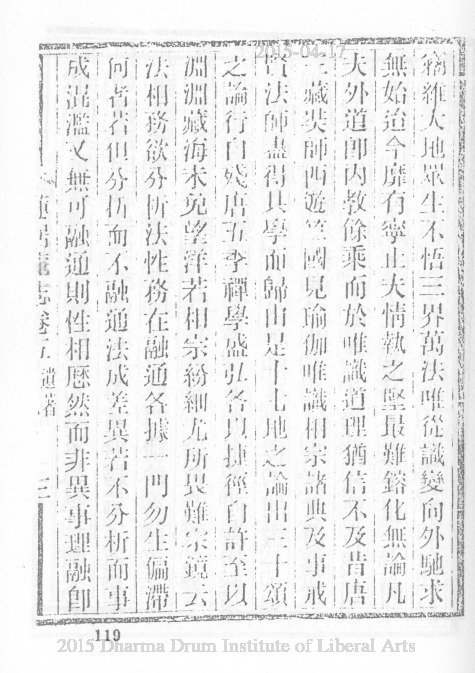 2015-04-17
竊維大地眾生不悟三界萬法唯從識變向外馳求
無始迨今靡有寧止夫情執之堅最難鎔化無論凡
夫外道即內教餘乘而於唯識道理猶信不及昔唐
三藏奘師西遊竺國見瑜伽唯識相宗諸典及事戒
賢法師盡得其學而歸由是十七地之論出三十頌
之論行自殘唐五季禪學盛弘各以捷徑自許至以
淵淵藏海未免望洋若相宗紛細尤所畏難宗鏡云
法相務欲分析法性務在融通各據一門勿生偏滯
何者若但分析而不融通法成差異若不分析而事
成混濫又無可融通則性相歷然而非異事理融即
蓮居菴志卷五 遺著 三
119
2015 Dharma Drum Institute of Liberal Arts